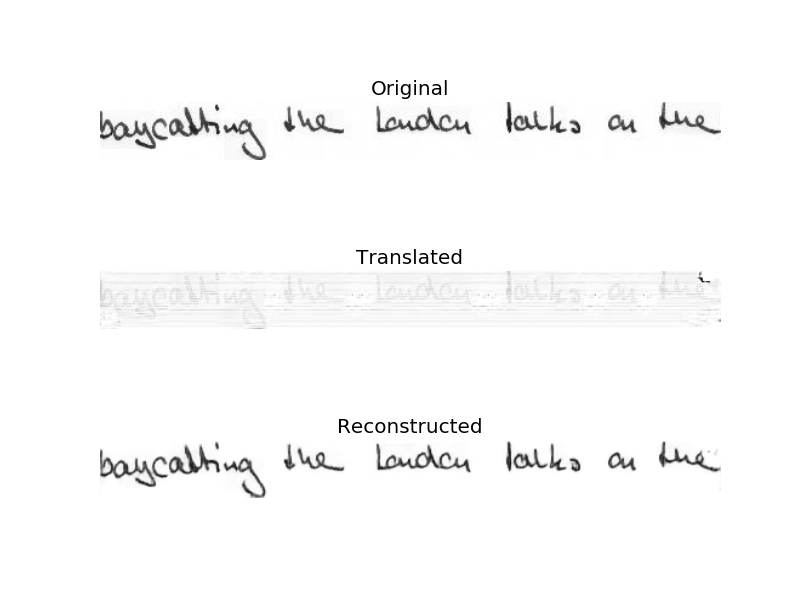 Original
baycatting the London talks on the
Translated
baycatting the London talks on the
Reconstructed
baycatting the London talks on the